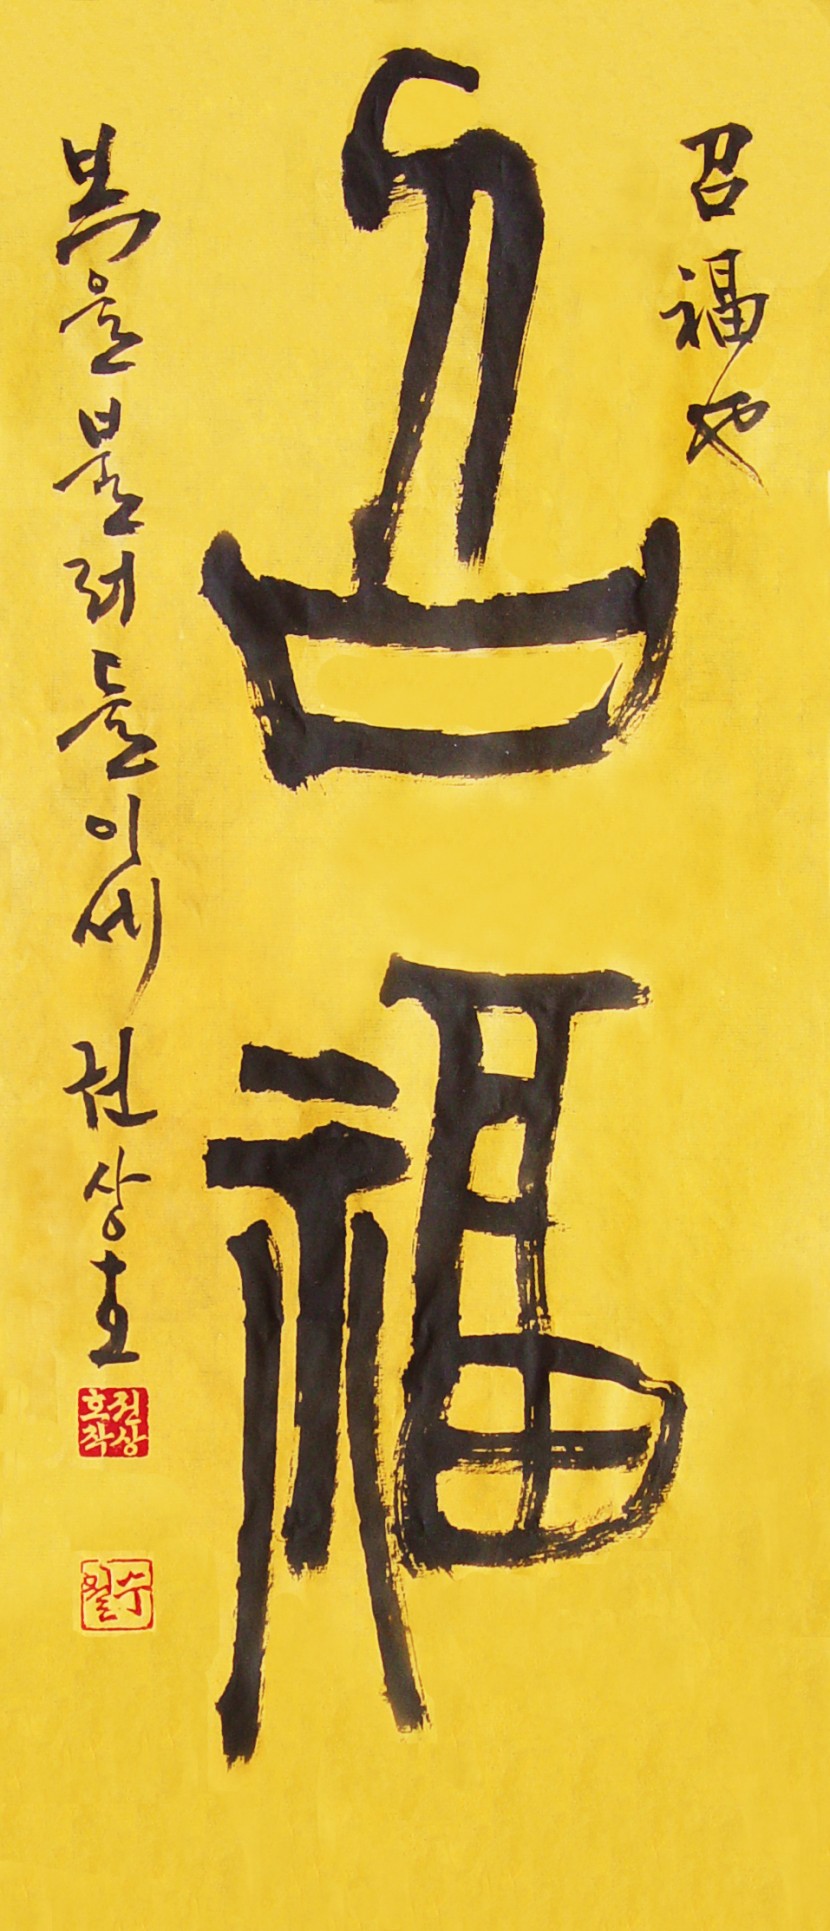 召福也
召福
복을 불러들이세 권상호
권상호작